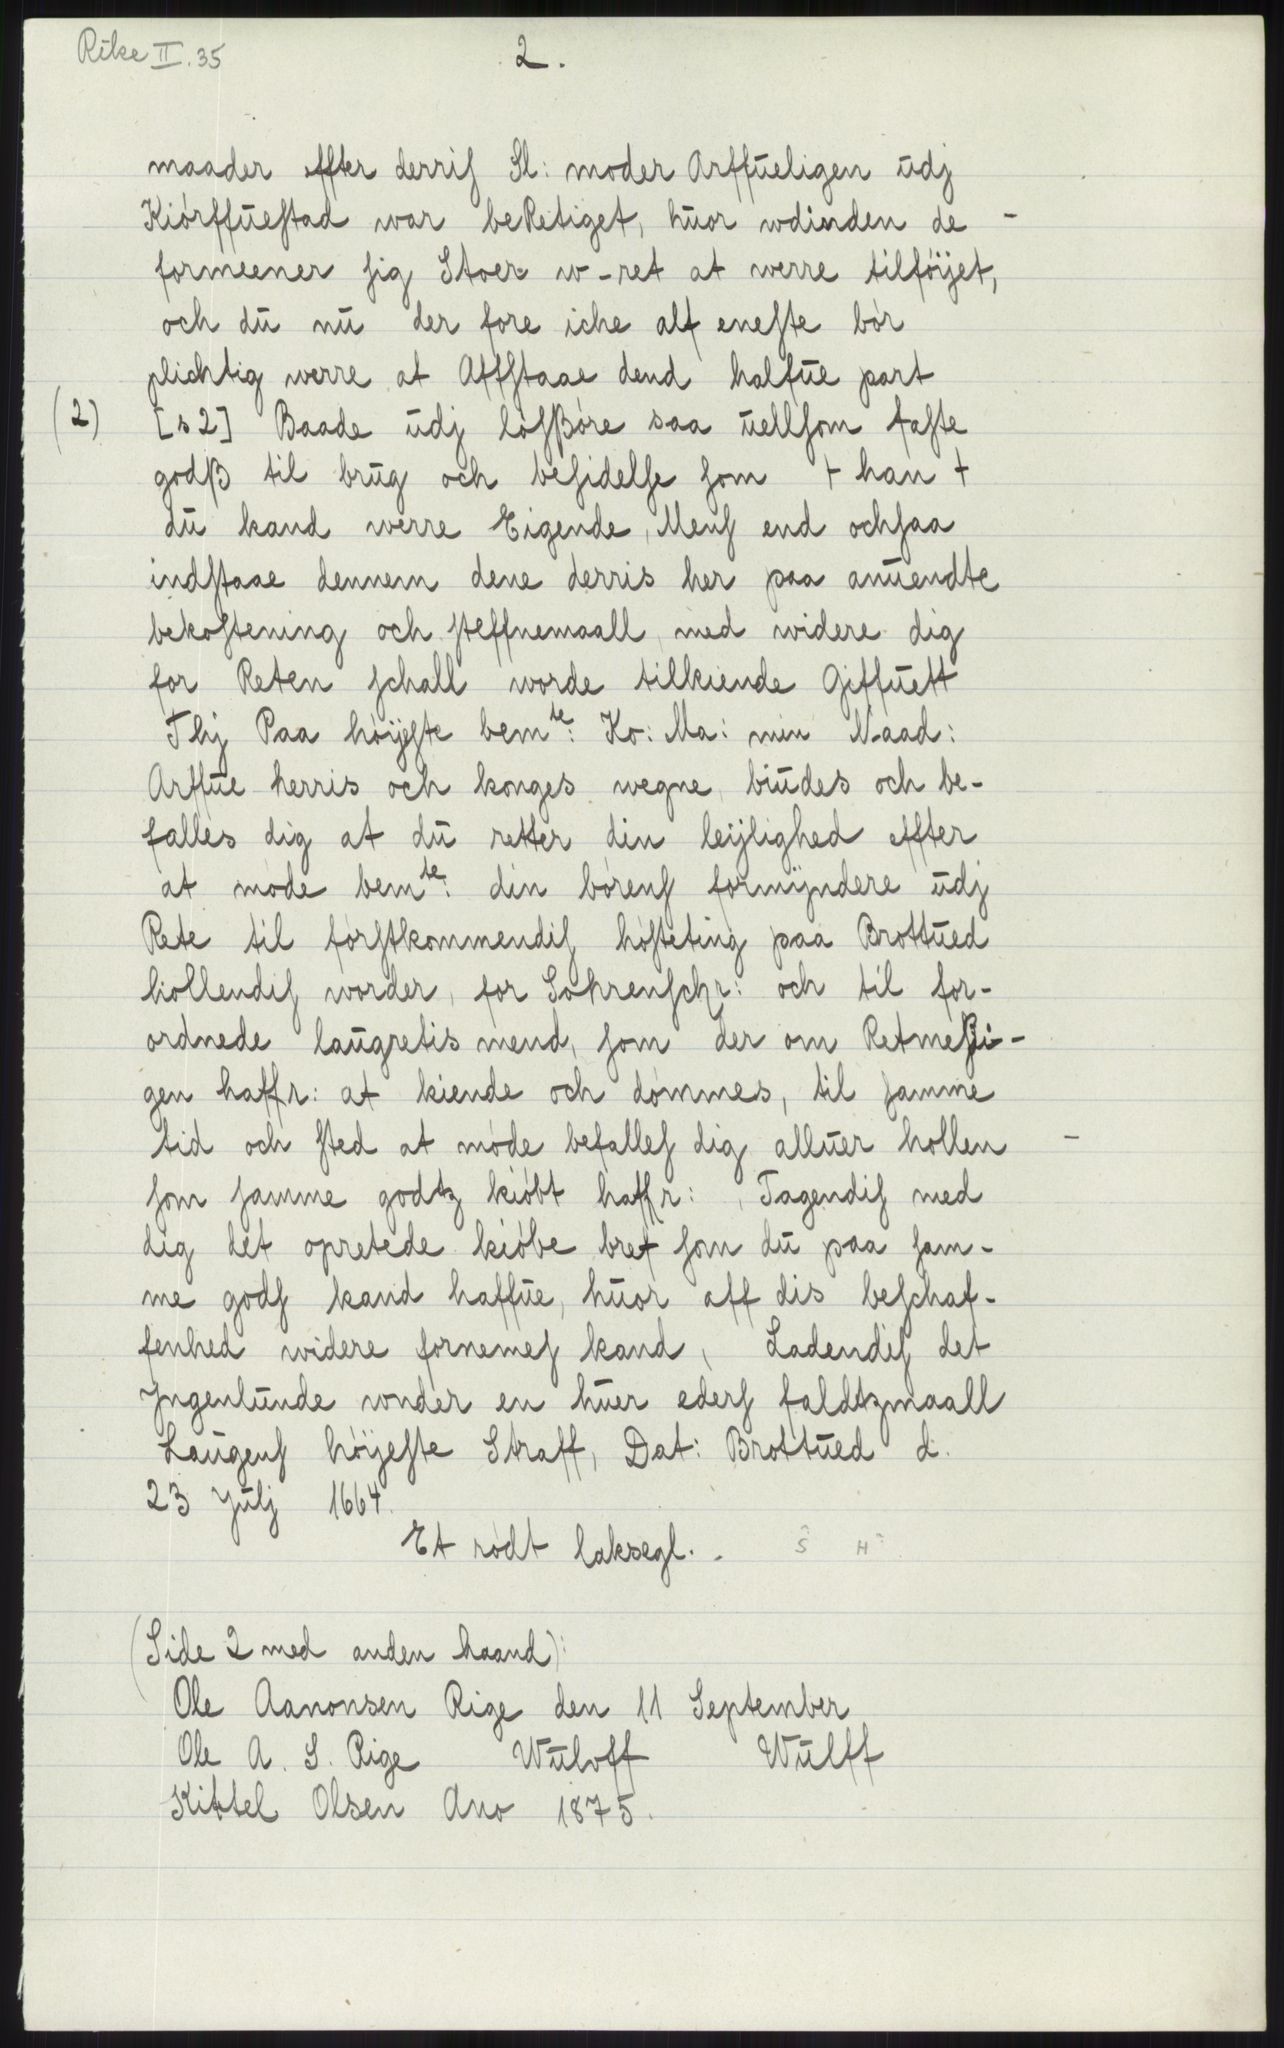 Rike II. 35
2.
maader effter derriſ Sl: moder Arffueligen udj
Kiórffueſtad war beRetiget, huor wdinden de -
formeener ſig Stoer w-ret at werre tilföÿet,
och du nu der fore iche alf eneſte bór
plichtig werre at Affſtaae dend halfue part
(2) [s 2] Baade udj lósſßóre saa uellſom faſte
godß til brug och beſidelſe ſom + han +
du kand werre Eigende, Menſ end ochſaa
indſtaae dennem dene derris her paa anuendte
bekoſtening och ſteffnemaall, med widere dig
for Reten ſchall worde tilkiende Giffuett
Thj Paa hóÿeſte bemte: Ko: Ma: min Naad:
Arffue herris och konges wegne, biudes och be-
falles dig at du retter din leÿlighed effter
at móde bemte: din bórenſ formÿndere udj
Rete til fórſtkommendiſ hóſteting paa Brottued
hollendiſ worder, for Sohrenſchr: och til for-
ordnede laugretis mend, ſom der om Retmeſsi-
gen haffr: at kiende och dómmes, til ſamme
tid och ſted at móde befalleſ dig alluer hollen -
ſom ſamme godtz kióbt haffr: , Tagendiſ med
dig det opretede kióbe bref ſom du paa ſam-
me godſ kand haffue, huor aff dis beſchaf-
fenhed widere fornemeſ kand, Ladendiſ det
Jngenlunde wnder en huer ederſ faldtzmaall
Laugenſ hóÿeſte Straff, Dat: Brottued d.
23 Julj 1664.
Et ródt laksegl. . S H
(Side 2 med anden haand):
Ole Aanonsen Rige den 11 September
Ole A. S. Rige Wulvff Wulff
Kittel Olsen Ano 1875.